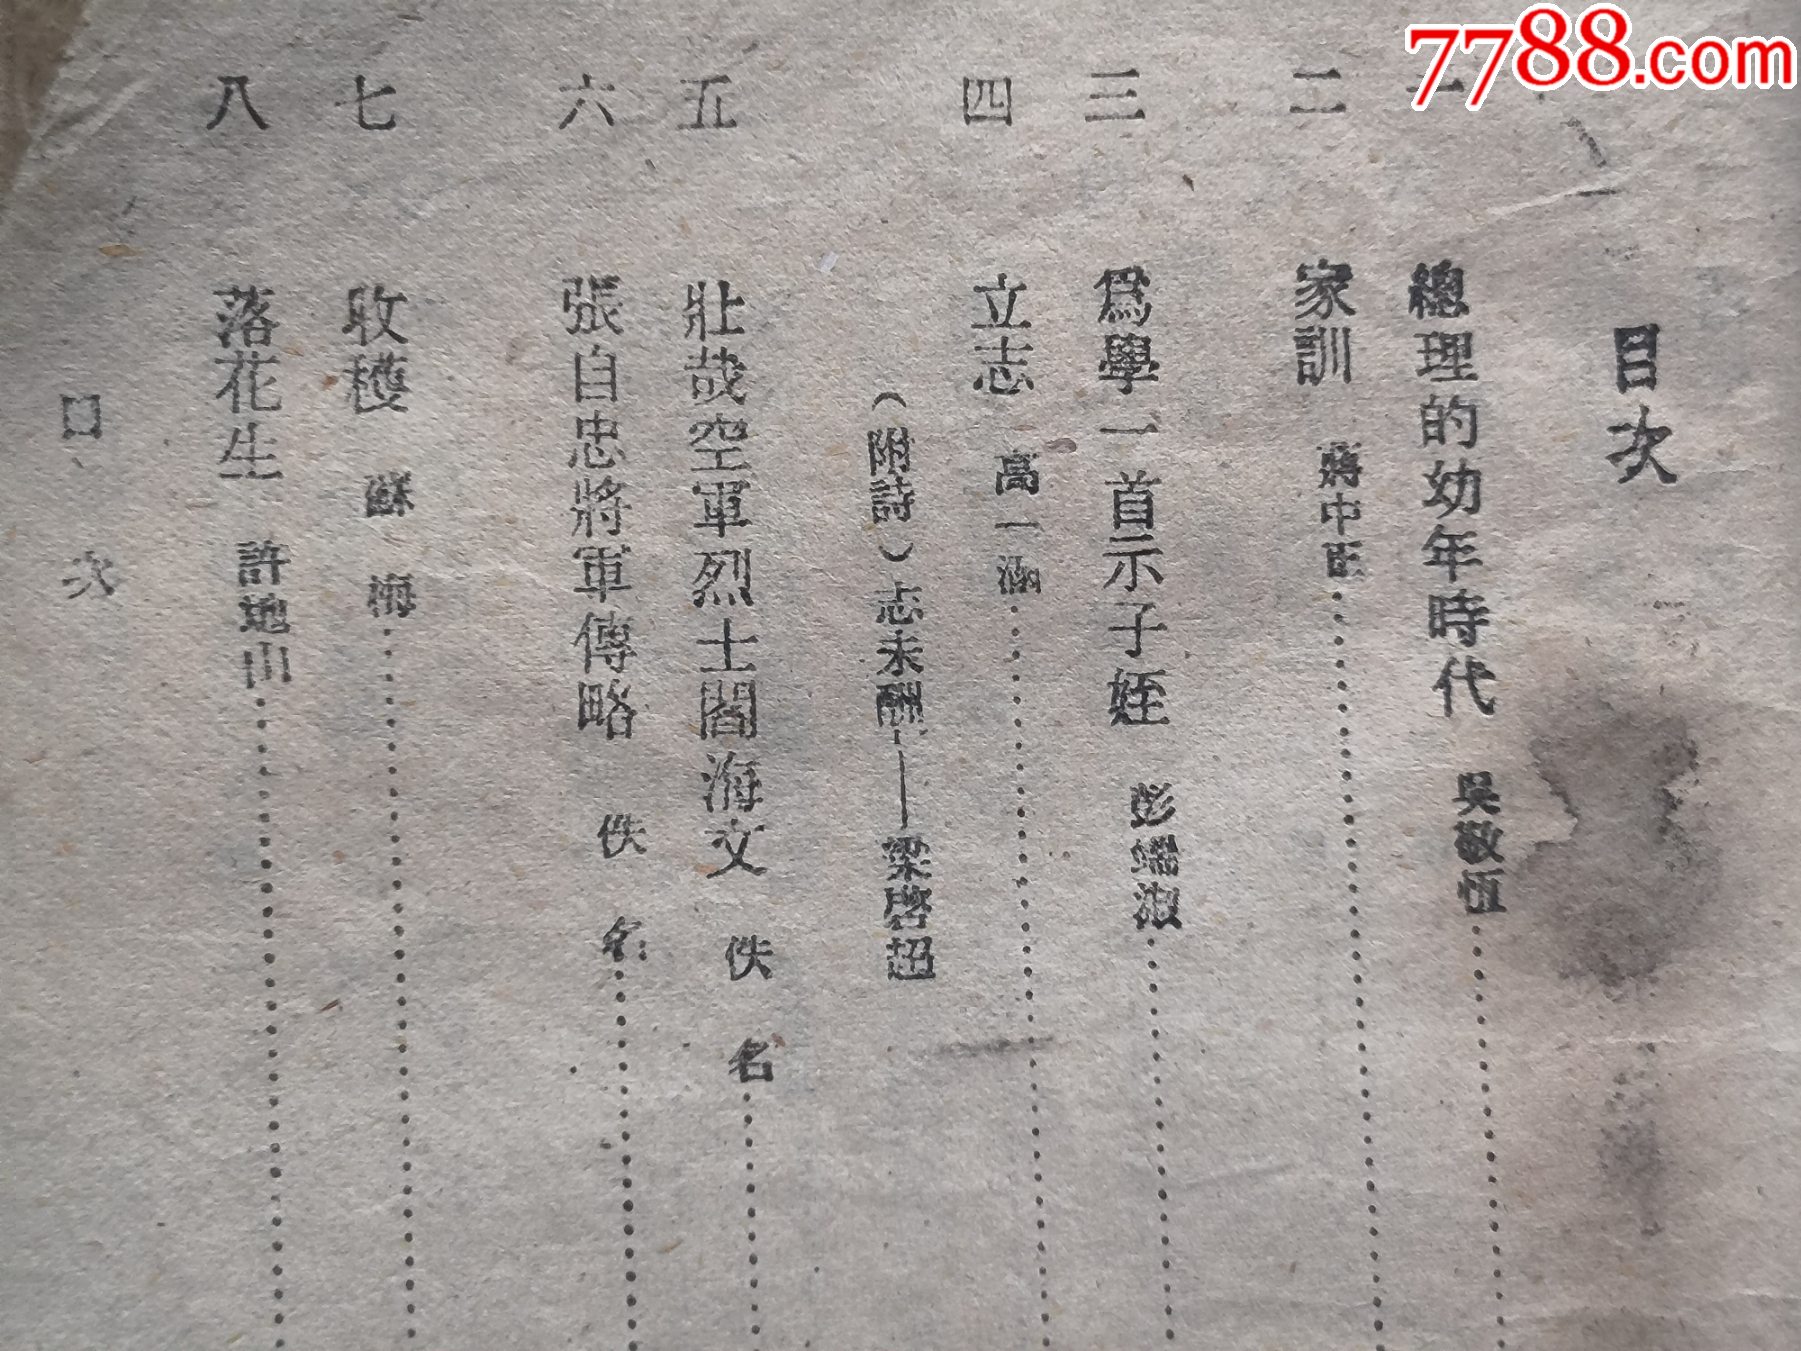 7788.com
目次
一 總理的幼年時代 吳敬恆
二 家訓 蔣中正
三 爲學一首示子姪 彭端淑
四 立志 高一涵
（附詩）志未酬——梁啓超
五 壯哉空軍烈士閻海文 佚名
六 張自忠將軍傳略 佚名
七 收穫 蘇梅
八 落花生 許地山
目次